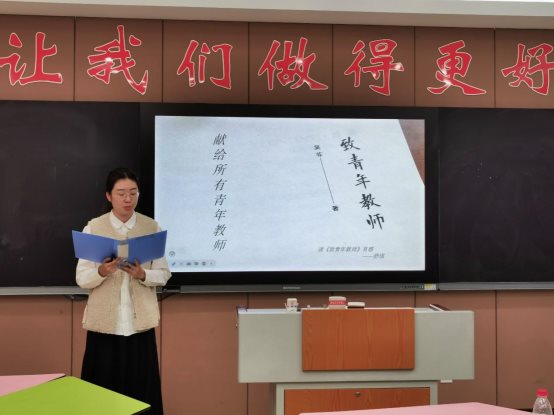 让我们做得更好
献给所有青年教师
致青年教师
吴非
著
读《致青年教师》有感